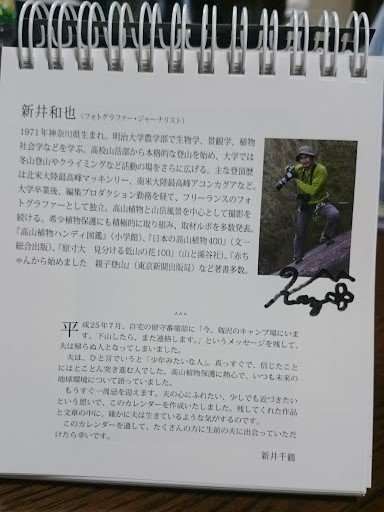 新井和也（フォトグラファー・ジャーナリスト）
1971年神奈川県生まれ。明治大学農学部で生物学、景観学、植物
社会学などを学ぶ。高校山岳部から本格的な登山を始め、大学では
冬山登山やクライミングなど活動の場をさらに広げる。主な登攀歴
は北米大陸最高峰マッキンリー、南米大陸最高峰アコンカグアなど。
大学卒業後、編集プロダクション勤務を経て、フリーランスのフォ
トグラファーとして独立。高山植物と山岳風景を中心として撮影を
続ける。希少植物保護にも積極的に取り組み、取材ルポを多数発表。
『高山植物ハンディ図鑑』（小学館）、『日本の高山植物400』（文一
総合出版）、『原寸大　見分ける低山の花100』（山と溪谷社）、『赤ち
ゃんから始めました　親子登山』（東京新聞出版局）など著書多数。
平成25年7月、自宅の留守番電話に「今、剱沢のキャンプ場にいま
す。下山したら、また連絡します。」というメッセージを残して、
夫は帰らぬ人となってしまいました。
夫は、ひと言でいうと「少年みたいな人」。真っすぐで、信じたこと
にはとことん突き進む人でした。高山植物保護に熱心で、いつも未来の
地球環境について語っていました。
もうすぐ一周忌を迎えます。夫の心にふれたい、少しでも近づきたい
という思いで、このカレンダーを作成いたしました。残してくれた作品
と文章の中に、確かに夫は生きているような気がするのです。
このカレンダーを通して、たくさんの方に生前の夫に出会っていただ
けたら幸いです。
新井千鶴